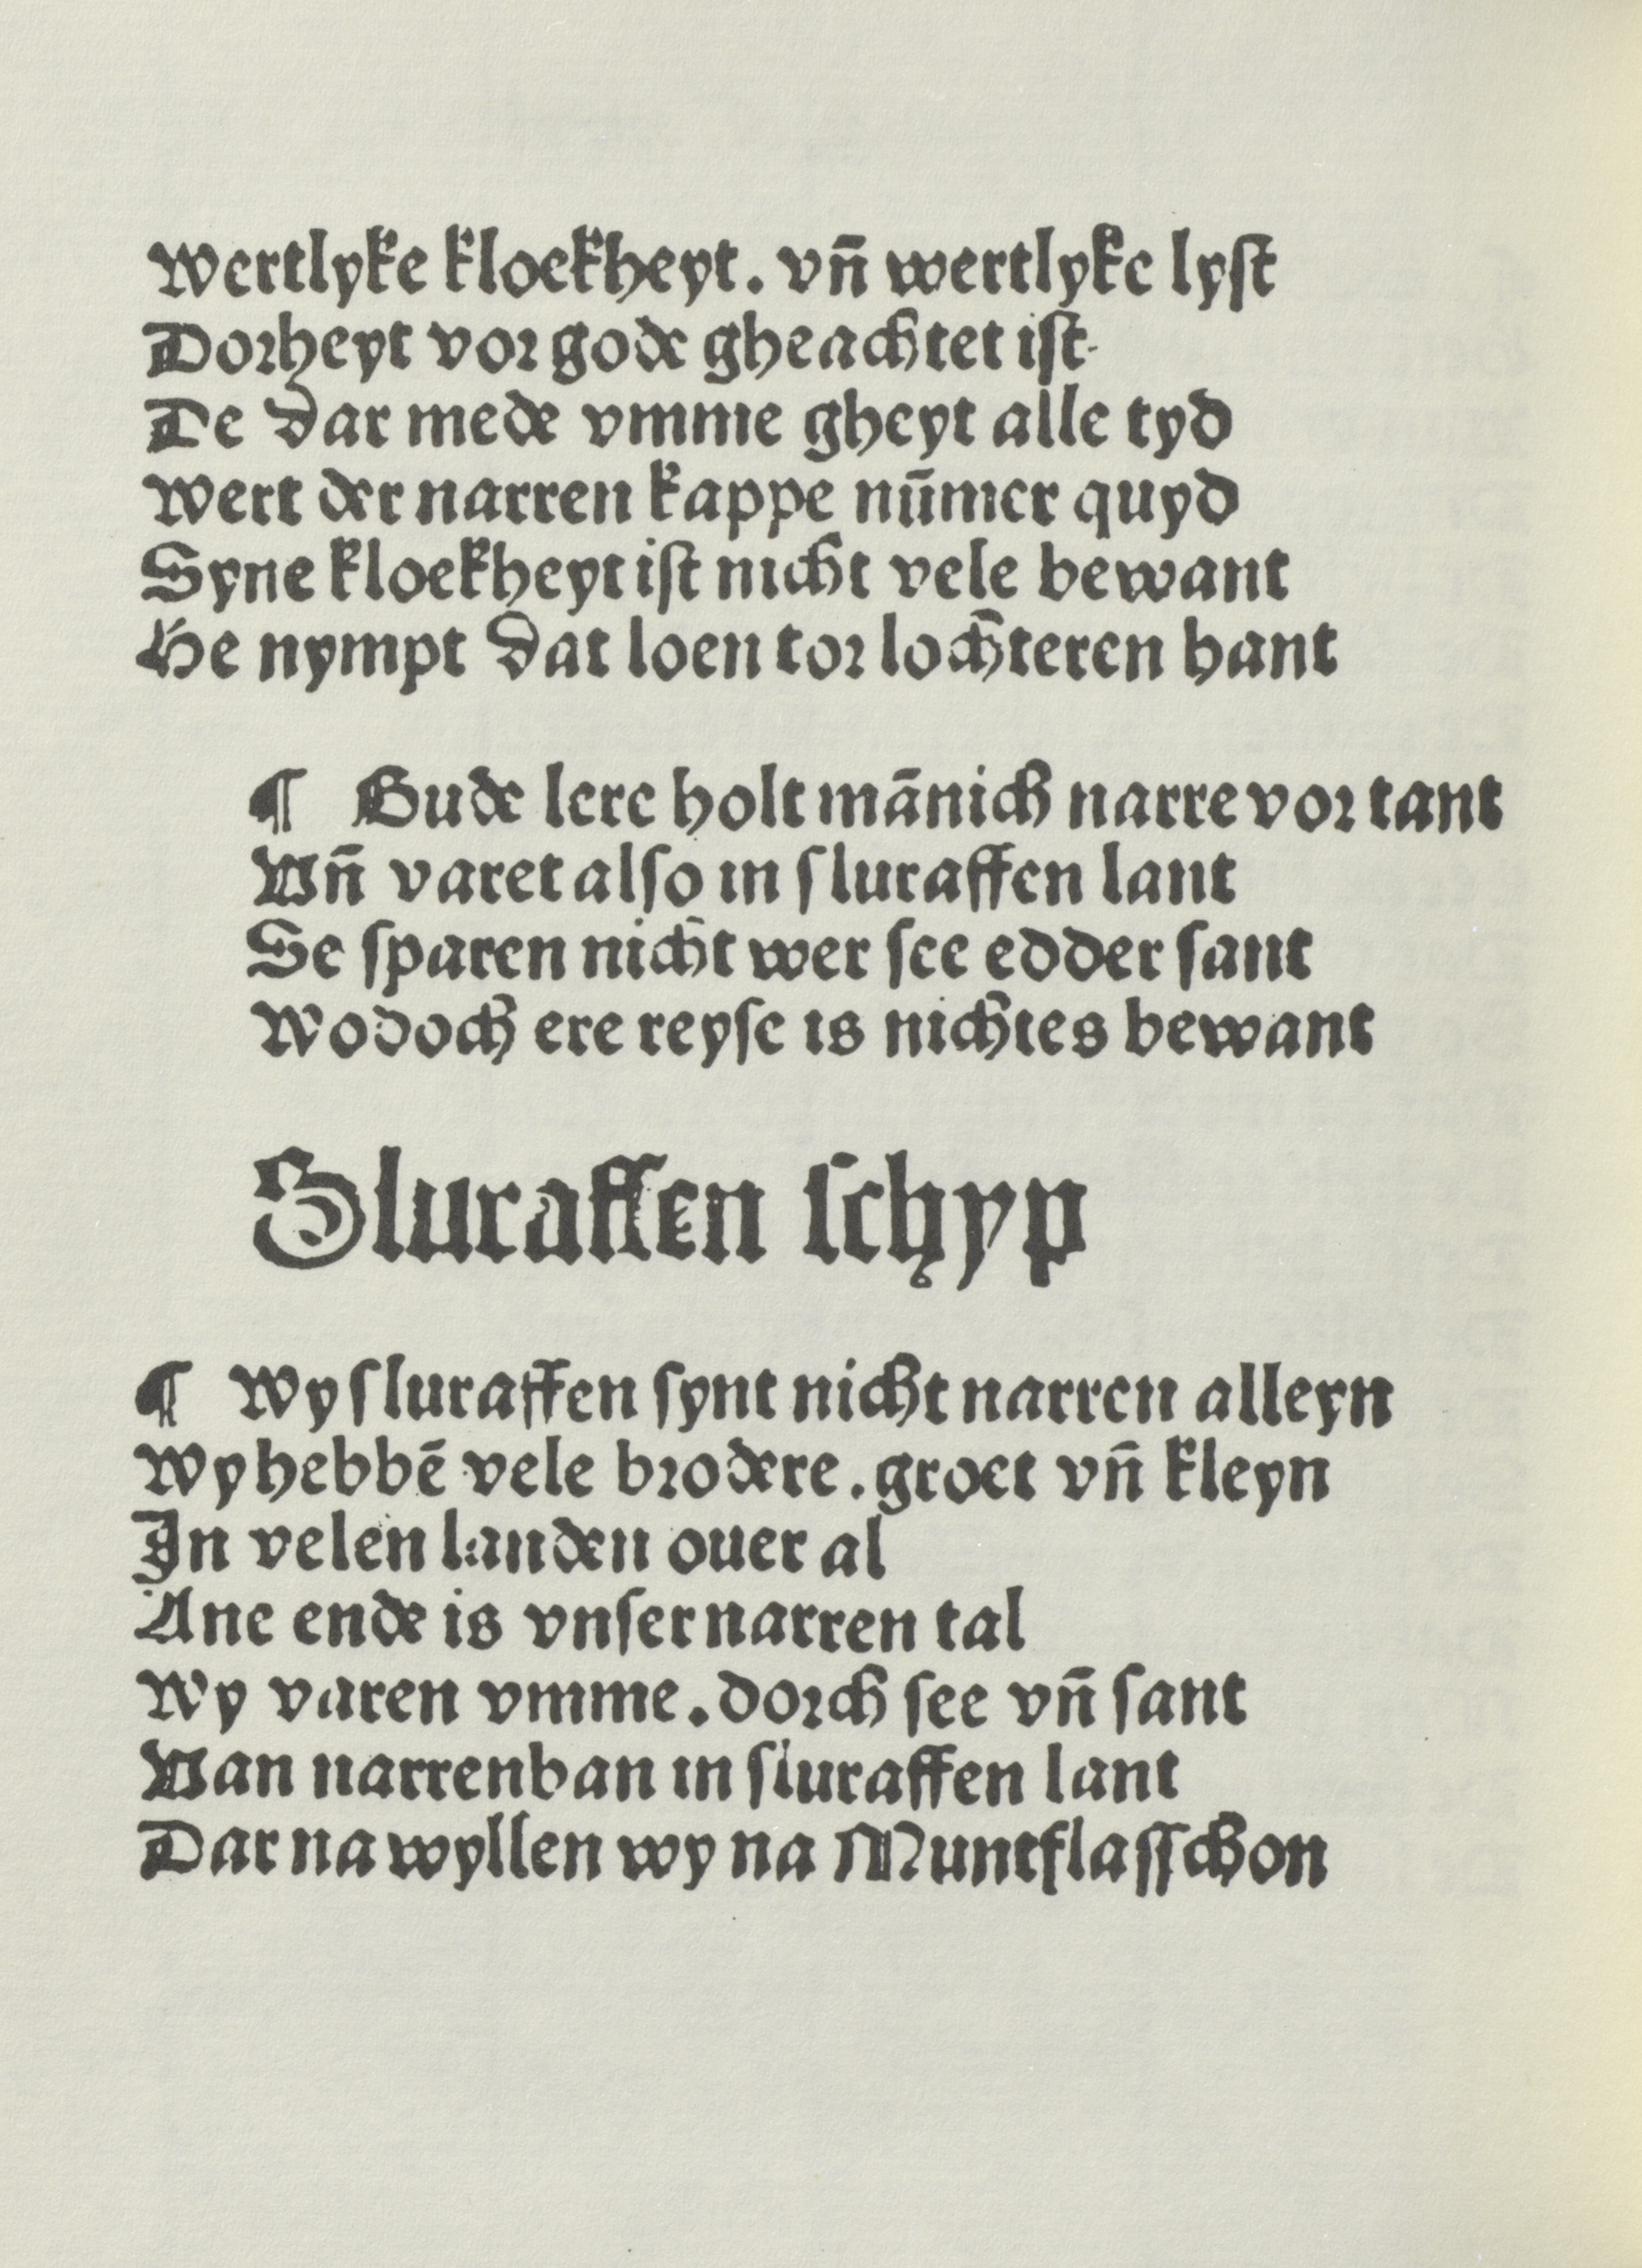 Wertlyke kloekheyt. vn̄ wertlyke lyſt
Dorheyt vor gode gheachtet iſt.
De dar mede vmme gheyt alle tyd
Wert der narren kappe nūmer quyd
Syne kloekheyt iſt nicht vele bewant
He nympt dat loen tor lochteren hant
¶ Gude lere holt mānich narre vor tant
Vn̄ varet alſo in ſluraffen lant
Se ſparen nicht wer ſee edder ſant
Wodoch ere reyſe is nichtes bewant
Sluraffen ſchyp
¶ Wy ſluraffen ſynt nicht narren alleyn
Wy hebbē vele brodere. groet vn̄ kleyn
In velen landen ouer al
Ane ende is vnſer narren tal
Wy varen vmme. dorch ſee vn̄ ſant
Van narrenban in ſluraffen lant
Dar na wyllen wy na Muntflaſſchon